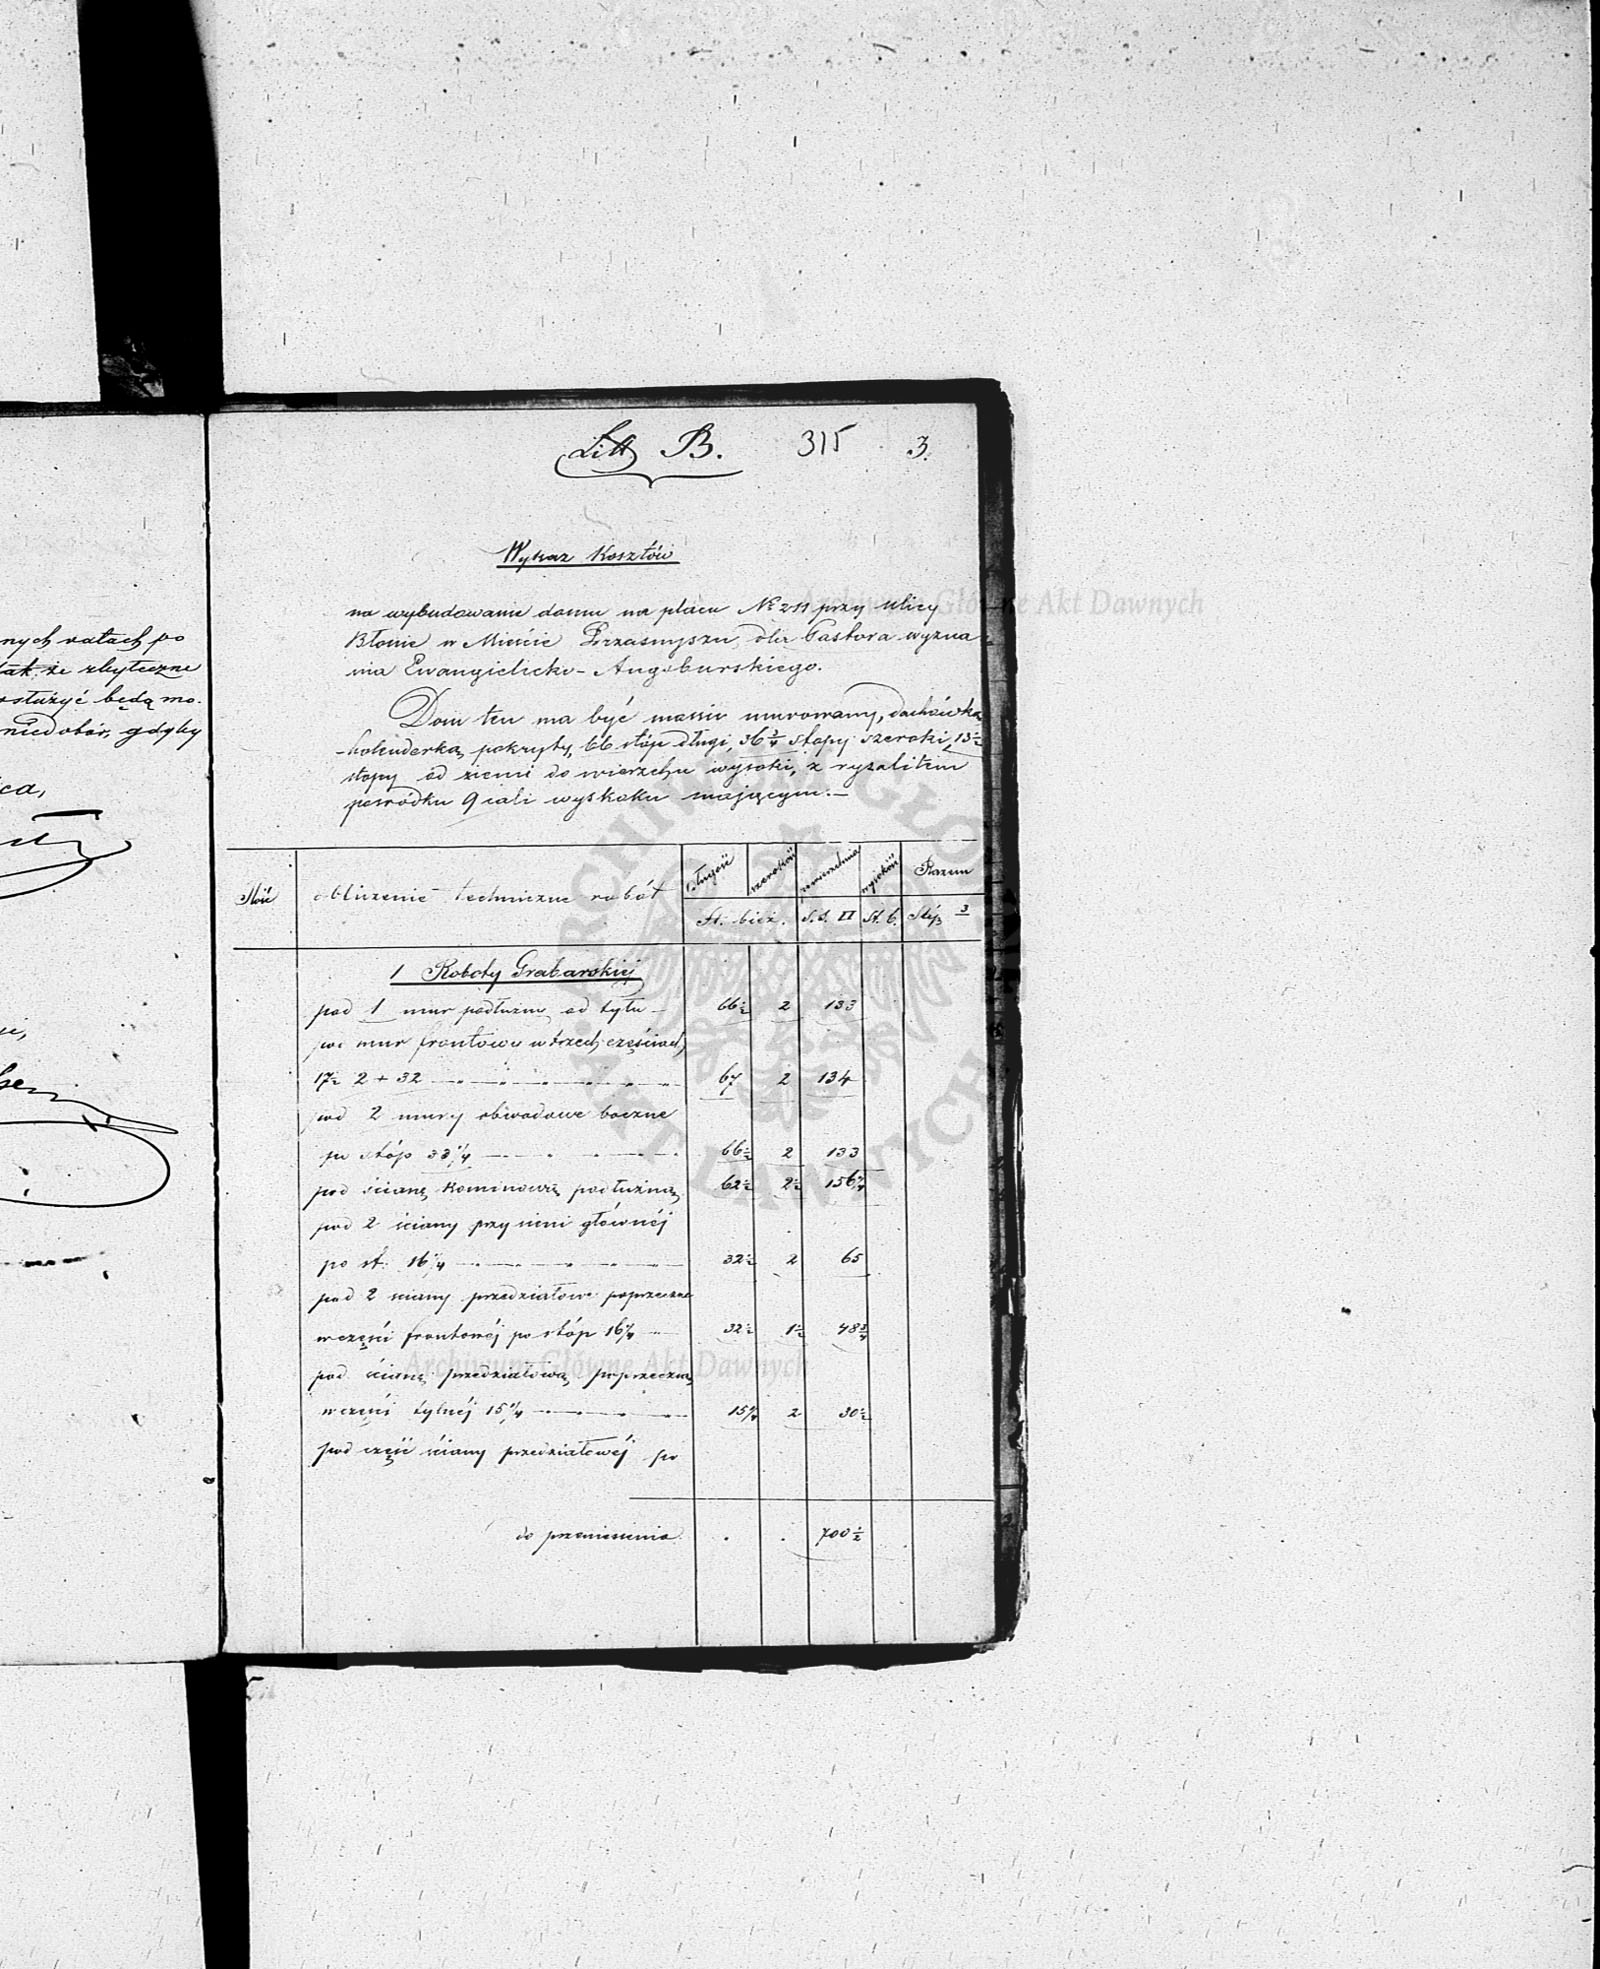 nych ratach po
tak że zbyteczne
służyć będą mo.
niedobór, gdyby
Litt B. 315 3.
Wykaz Kosztów
na wybudowanie domu na placu № 211 przy ulicy
Błonie w Mieście Przasnyszu, dla Pastora wyzna
nia Ewangielicko-Augsburskiego.
Dom ten ma być massiv murowany, dachówką
holenderką pokryty, 66 stóp długi, 36 3/4 stopy szeroki, 13 1/2
stopy od ziemi do wierzchu wysoki, z ryzalitem
pośrodku 9 cali wyskoku mającym.—
Ilość obliczenie techniczne robót długość szerokość powierzchnia wysokość Razem
St. bież. S. S. □ St. b. Stóp 3
1 Roboty Grabarskie
pod 1 mur podłużny od tyłu 66 1/2 2 133
pod mur frontowy w trzech częściach
17 1/2 2 + 32 67 2 134
pod 2 mury obwodowe boczne
po stóp 33 1/4 66 1/2 2 133
pod ścianę kominową podłużną 62 1/2 2 1/2 156 1/4
pod 2 ściany przy sieni głównéj
po st. 16 1/4 32 1/2 2 65
pod 2 ściany przedziałowe poprzeczne
w części frontowéj po stóp 16 1/4 32 1/2 1 1/2 48 3/4
pod ścianę przedziałową poprzeczną
w części tylnéj 15 1/4 15 1/4 2 30 1/2
pod część ściany przedziałowéj po
do przeniesienia . . 700 1/2
Archiwum Główne Akt Dawnych
Archiwum Główne Akt Dawnych
ARCHIWUM GŁÓWNE AKT DAWNYCH